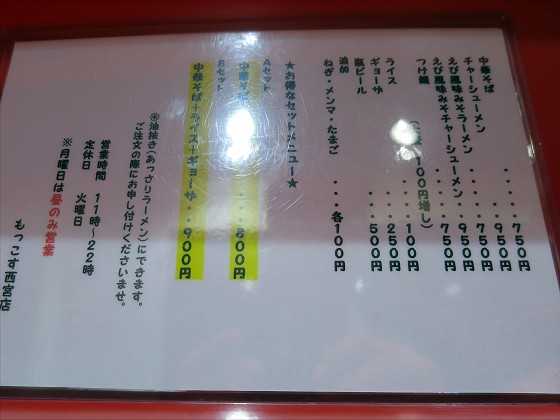 中華そば ・・・・750円
チャーシューメン ・・・・950円
えび風味みそラーメン ・・・750円
えび風味みそチャーシューメン・・950円
つけ麺 ・・・・750円
100円増し)
ライス ・・・・100円
ギョーザ ・・・・250円
瓶ビール ・・・・500円
追加
ねぎ・メンマ・たまご ・・・・各100円
★お得なセットメニュー★
Aセット
中華そば ・・・・800円
Bセット
中華そば+ライス+ギョーザ・・・900円
※油抜き(あっさりラーメン)にできます。
ご注文の際にお申し付けくださいませ。
営業時間 11時~22時
定休日 火曜日
※月曜日は昼のみ営業
もっこす西宮店